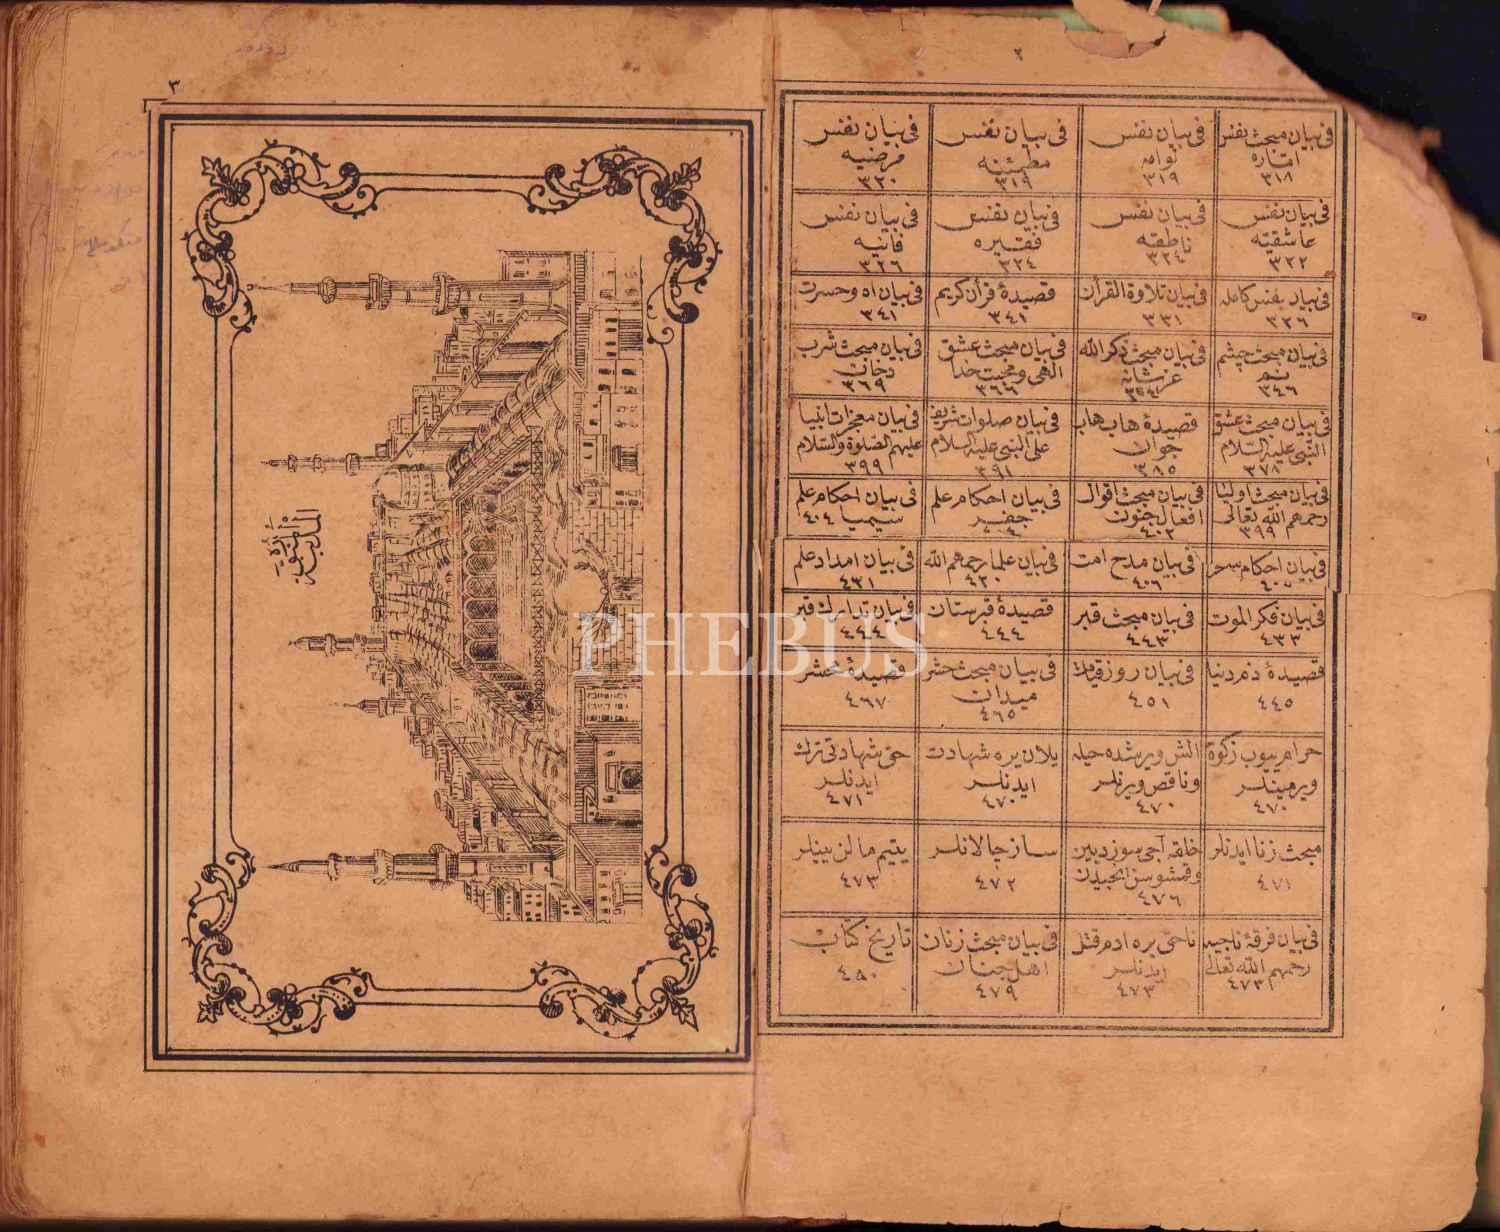 ٢
في بيان مبحث نفس
امّاره
٣١٨
في بيان نفس
لوامه
٣١٩
في بيان نفس
مطمئنه
٣١٩
في بيان نفس
مرضيه
٣٢٠
في بيان نفس
عاشقيّه
٣٢٢
في بيان نفس
ناطقه
٣٢٤
في بيان نفس
فقيره
٣٢٤
في بيان نفس
فانيه
٣٢٦
في بيان نفس كامله
٣٢٦
في بيان تلاوة القرأن
٣٣١
قصيدۀ قرأن كريم
٣٤١
في بيان اه وحسرت
٣٤١
في بيان مبحث چشم
نم
٣٤٦
في بيان مبحث ذكر الله
عز شانه
في بيان مبحث عشق
الهى ومحبت خدا
٣٦٦
في بيان مبحث شرب
دخان
٣٦٩
في بيان مبحث عشق
النّبي عليه السّلام
٣٧٨
قصيدۀ هاب هاب
جوان
٣٨٥
في بيان صلوات شريف
على النبي عليه السلام
٣٩١
في بيان معجزات انبيا
عليهم الصّلوة والسّلام
٣٩٩
في بيان مبحث اوليا
رحمهم الله تعالى
٣٩٩
في بيان مبحث اقوال
افعال جنون
٤٠٢
في بيان احكام علم
جفر
في بيان احكام علم
سيميا ٤٠٤
في بيان احكام سحر
٤٠٥
في بيان مدح امت
٤٠٦
في بيان علما رحمهم الله
٤٢٠
في بيان امداد علم
٤٣١
في بيان فكر الموت
٤٣٣
في بيان مبحث قبر
٤٤٣
قصيدۀ قبرستان
٤٤٤
في بيان تدارك قبر
٤٤٤
قصيدۀ ذم دنيا
٤٤٥
في بيان روز قيامت
٤٥١
في بيان مبحث حشر
ميدان
٤٦٥
قصيدۀ محشر
٤٦٧
حرام ييوب زكوة
ويرمينلر
٤٧٠
الش ويرشده حيله
وناقص ويرنلر
٤٧٠
يلان يره شهادت
ايدنلر
٤٧٠
حق شهادتى ترك
ايدنلر
٤٧١
مبحث زنا ايدنلر
٤٧١
خلقه آجى سوز ديين
٤٧٦
ساز چالانلر
٤٧٢
يتيم مالن يينلر
٤٧٣
في بيان فرقۀ ناجيه
رحمهم الله تعالى
٤٧٣
ناحق يره ادم قتل
ايدنلر
٤٧٣
في بيان مبحث زنان
اهل جنان
٤٧٩
تاريخ كتاب
٤٨٠
٣
المدينة
المنوّره
PHEBUS